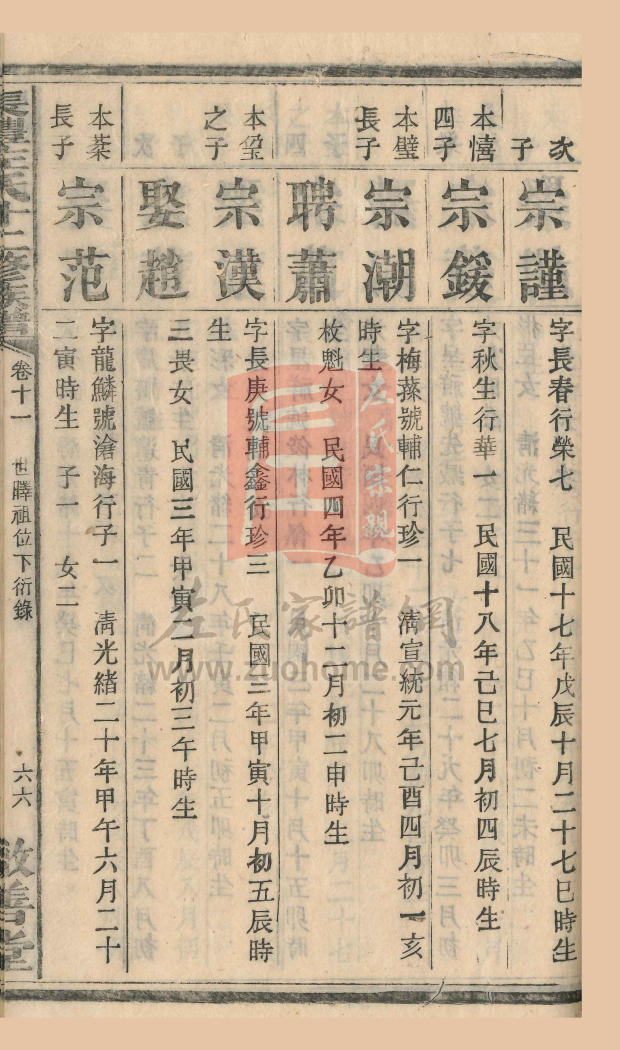 次子
宗謹
字長春行榮七 民國十七年戊辰十月二十七巳時生
本僖四子
宗鍰
字秋生行華一 民國十八年己巳七月初四辰時生
本璧長子
宗潮
字梅蓀號輔仁行珍一 清宣統元年己酉四月初一亥
時生
聘蕭
枚魁女 民國四年乙卯十二月初二申時生
之子
宗漢
字長庚號輔鑫行珍三 民國三年甲寅十月初五辰時
生
娶趙
三畏女 民國三年甲寅二月初三午時生
本棻長子
宗范
字龍鱗號滄海行子一 清光緒二十年甲午六月二十
二寅時生 子三 女二
左氏十二修族譜
卷十一
世驊祖位下衍錄
六六
敬善堂
左氏宗親
左氏家譜網
www.zuohome.com